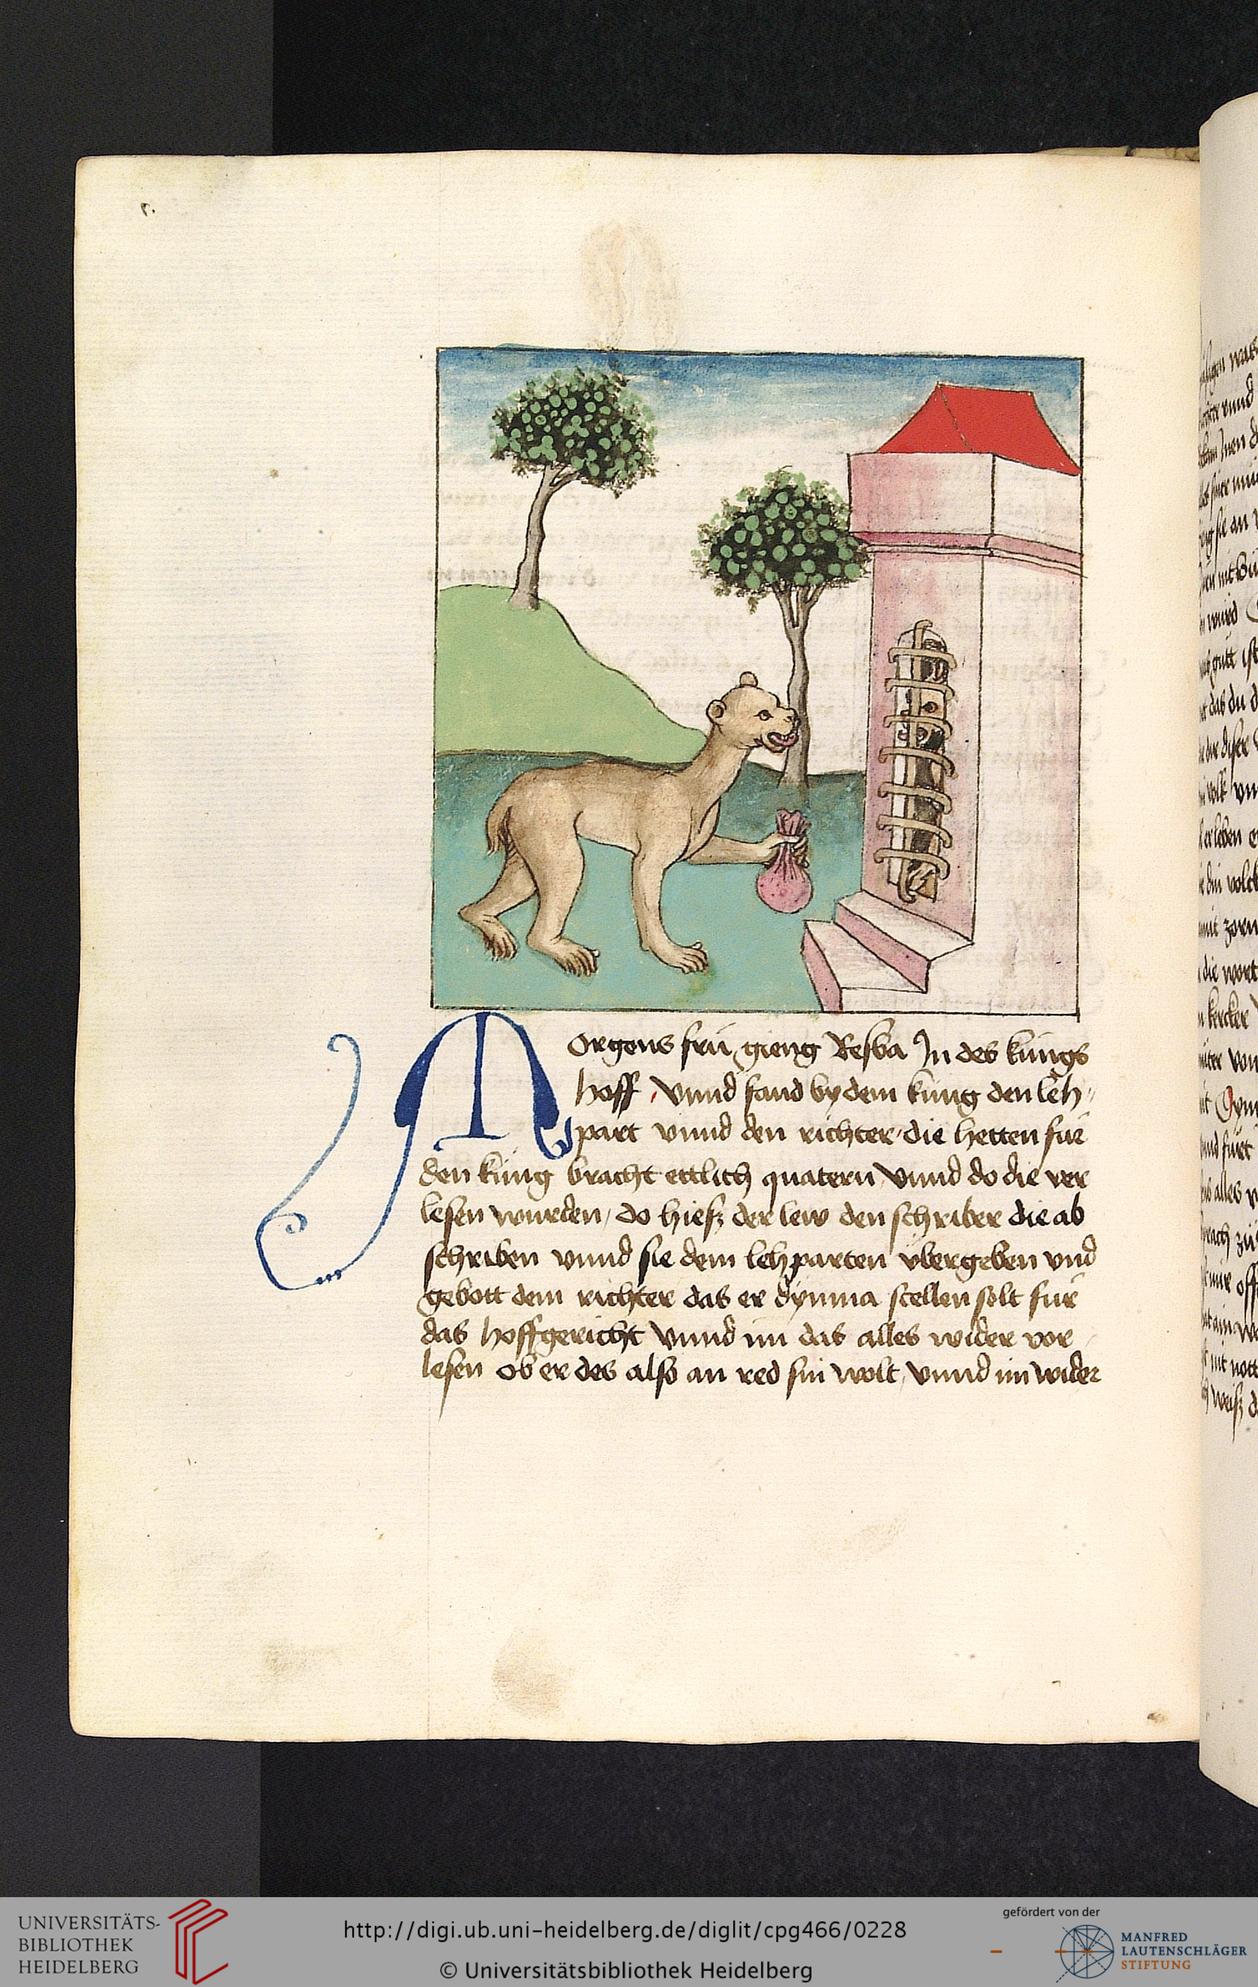 Morgens frü gieng Resba In des künigs
hoff / Vnnd fand by dem künig den leh-
part vnnd den richter / die hetten für
den künig bracht ettlich quatern Vnnd do die ver
lesen wurden / do hiesz der lew den schriber die ab
schriben vnnd sie dem lehparten übergeben vnd
gebott dem richter das er dymna stellen solt für
das hoffgericht Vnnd im das alles wider vor
lesen ob er des also an red sin wolt / vnnd im wider
UNIVERSITÄTS-
BIBLIOTHEK
HEIDELBERG
http://digi.ub.uni-heidelberg.de/diglit/cpg466/0228
© Universitätsbibliothek Heidelberg
gefördert von der
MANFRED
LAUTENSCHLÄGER
STIFTUNG